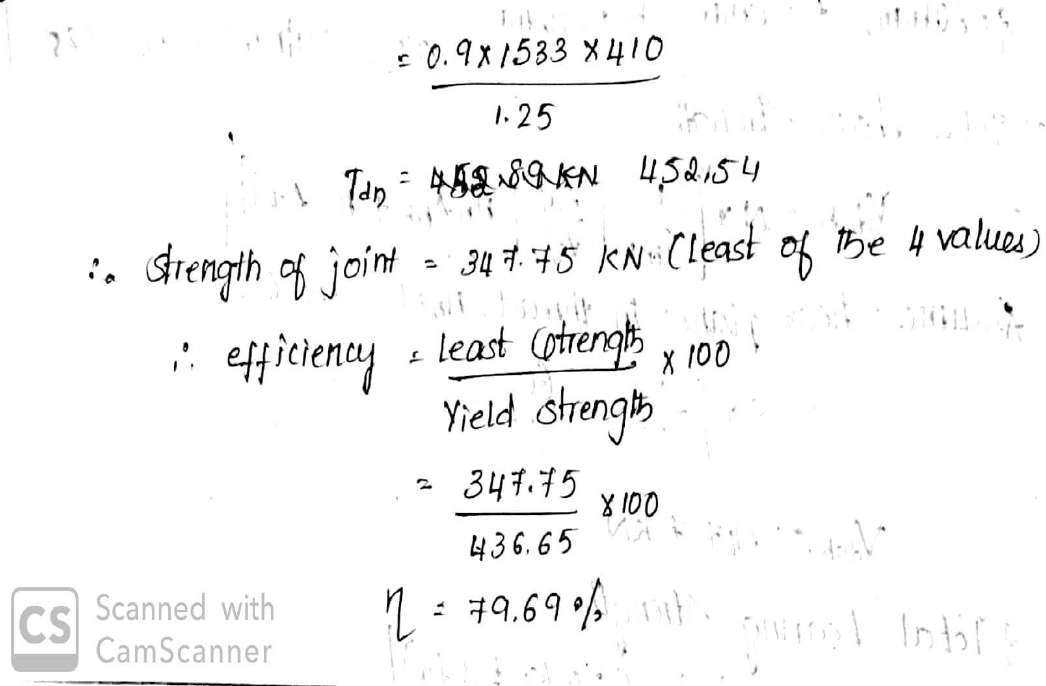 = 0.9 x 1533 x 410
1.25
Tdn = 452.54
∴ Strength of joint = 347.75 KN (least of the 4 values)
∴ efficiency = least strength x 100
Yield strength
= 347.75 x 100
436.65
η = 79.69 %
CS Scanned with
CamScanner